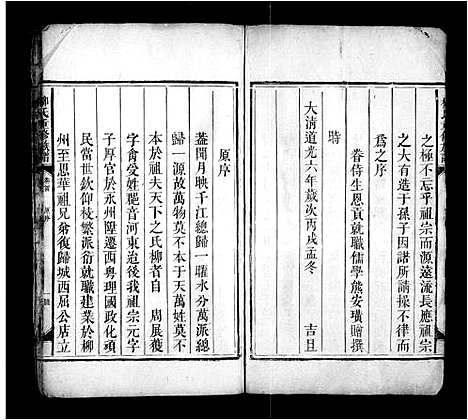 之極不忘乎祖宗而源遠流長應祖宗
之大有造于孫子因諸所請操不律而
爲之序
眷侍生恩貢就職儒學熊安璜贈撰
時
大清道光六年歲次丙戌孟冬 吉旦
原序
蓋聞月映千江總歸一曜水分萬派總
歸一源故萬物莫不本於天萬姓莫不
本於祖夫天下之氏柳者自 周展獲
字禽受姓聽音河東我祖宗元字
子厚官於永州陞遷西粵理國政化頑
民當世欽仰校繁派衍就職建業於柳
州至思華祖兄弟復歸城西屈公店立
柳氏重修族譜
卷首 原序